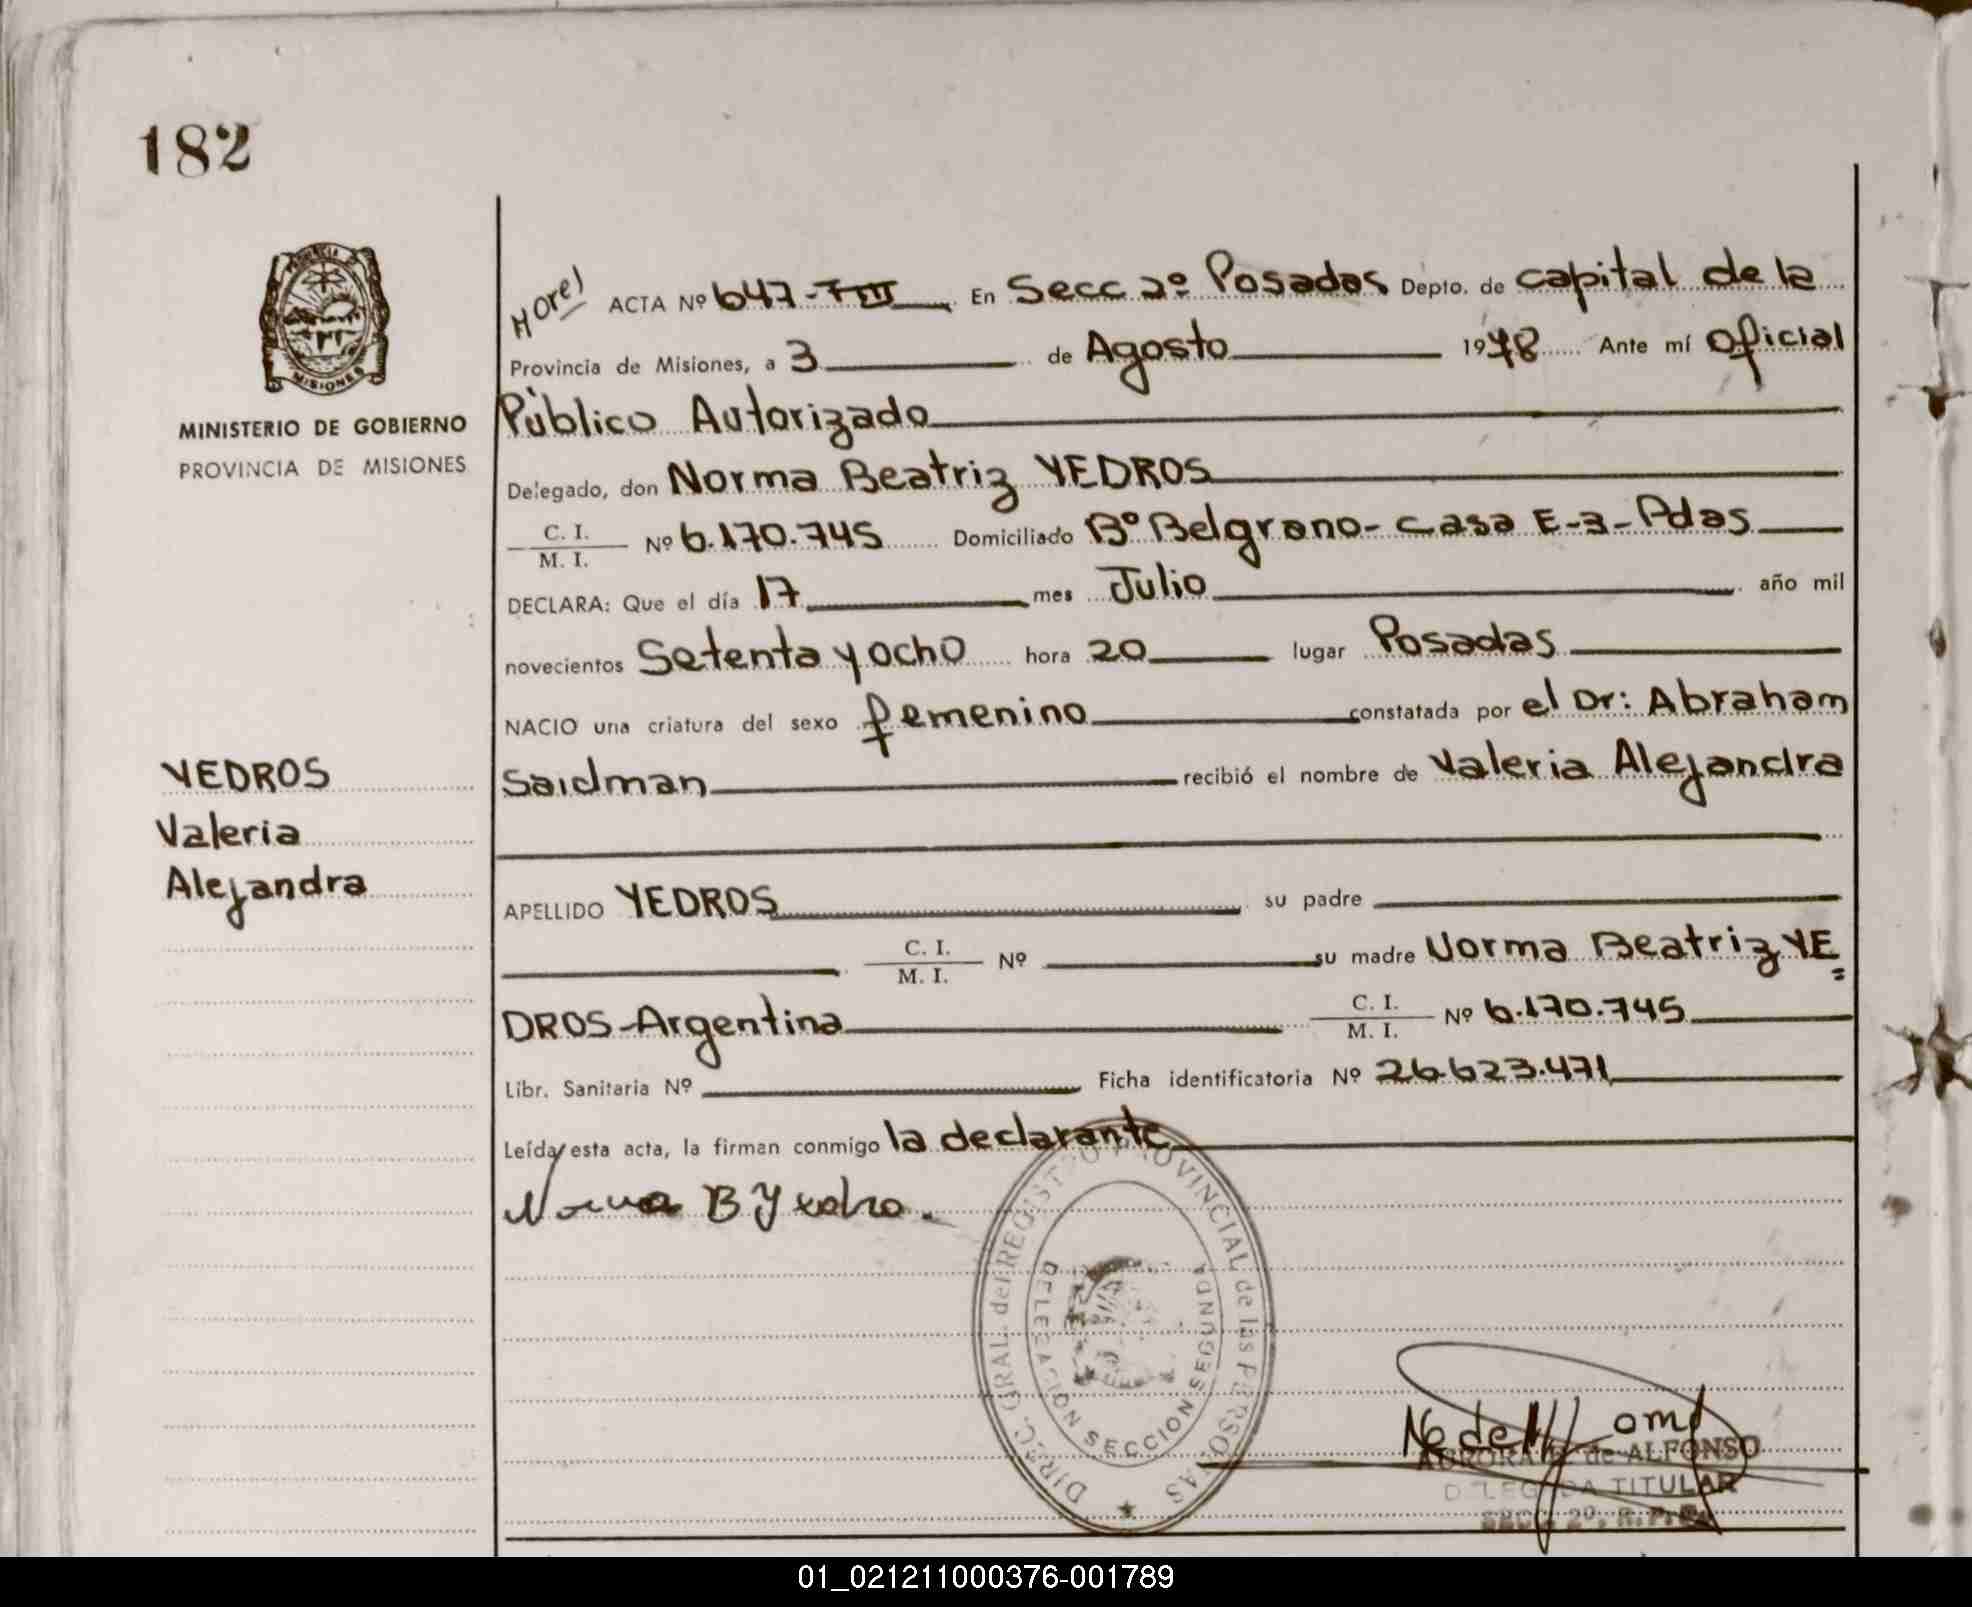 182
PROVINCIA DE
MISIONES
MINISTERIO DE GOBIERNO
PROVINCIA DE MISIONES
YEDROS
Valeria
Alejandra
ACTA Nº 647-TIII En Secc 2º Posadas Depto. de capital de la
Provincia de Misiones, a 3 de Agosto 1978 Ante mí Oficial
Público Autorizado
Delegado, don Norma Beatriz YEDROS
C. I.
M. I. Nº 6.170.745 Domiciliado Bº Belgrano - casa E-3- Pdas
DECLARA: Que el día 17 mes Julio año mil
novecientos Setenta y ocho hora 20 lugar Posadas
NACIO una criatura del sexo femenino constatada por el Dr: Abraham
Saidman recibió el nombre de Valeria Alejandra
APELLIDO YEDROS su padre
C. I.
M. I. Nº su madre Norma Beatriz YE
DROS-Argentina C. I.
M. I. Nº 6.170.745
Libr. Sanitaria Nº Ficha identificatoria Nº 26.623.471
Leída esta acta, la firman conmigo la declarante
Norma B Yedro.
DIREC. GRAL. del REGISTRO PROVINCIAL de las PERSONAS
DELEGACION SECCION SEGUNDA
AURORA de ALFONSO
DELEGADA TITULAR
SECC 2º. R.P.P.
01_021211000376-001789